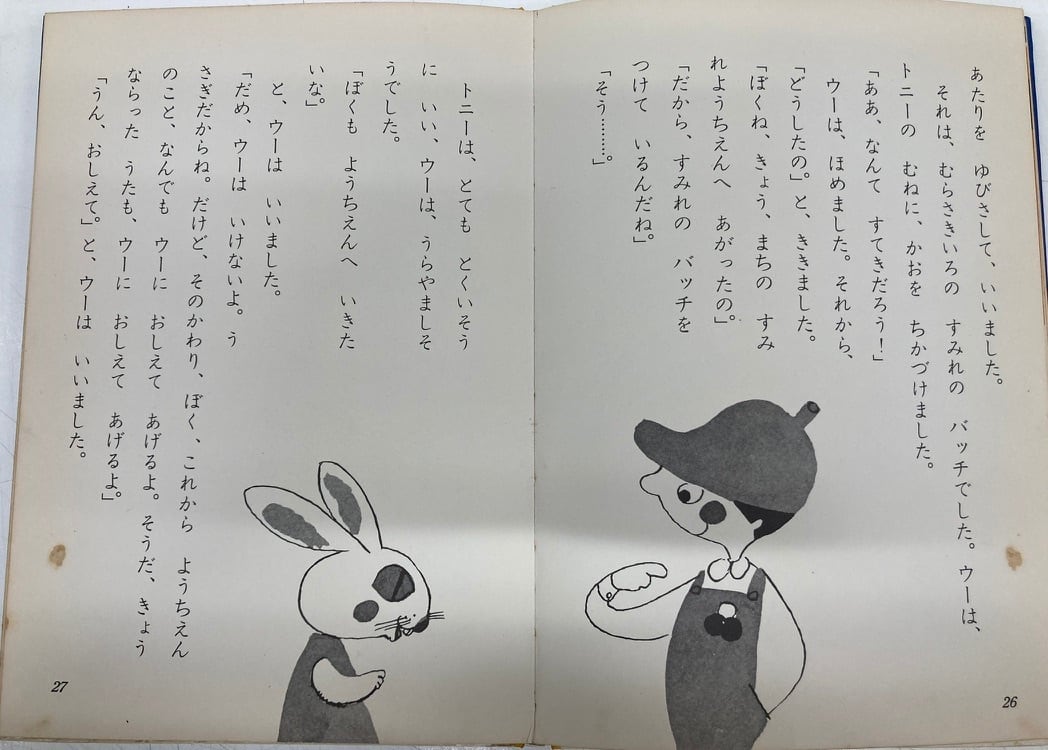 あたりを　ゆびさして、いいました。
それは、むらさきいろの　すみれの　バッチでした。ウーは、
トニーの　むねに、かおを　ちかづけました。
「ああ、なんて　すてきだろう！」
ウーは、ほめました。それから、
「どうしたの。」と、ききました。
「ぼくね、きょう、まちの　すみ
れようちえんへ　あがったの。」
「だから、すみれの　バッチを
つけて　いるんだね。」
「そう………。」
26
トニーは、とても　とくいそう
に　いい、ウーは、うらやましそ
うでした。
「ぼくも　ようちえんへ　いきた
いな。」
と、ウーは　いいました。
「だめ、ウーは　いけないよ。う
さぎだからね。だけど、そのかわり、ぼく、これから　ようちえん
のこと、なんでも　ウーに　おしえて　あげるよ。そうだ、きょう
ならった　うたも、ウーに　おしえて　あげるよ。」
「うん、おしえて。」と、ウーは　いいました。
27